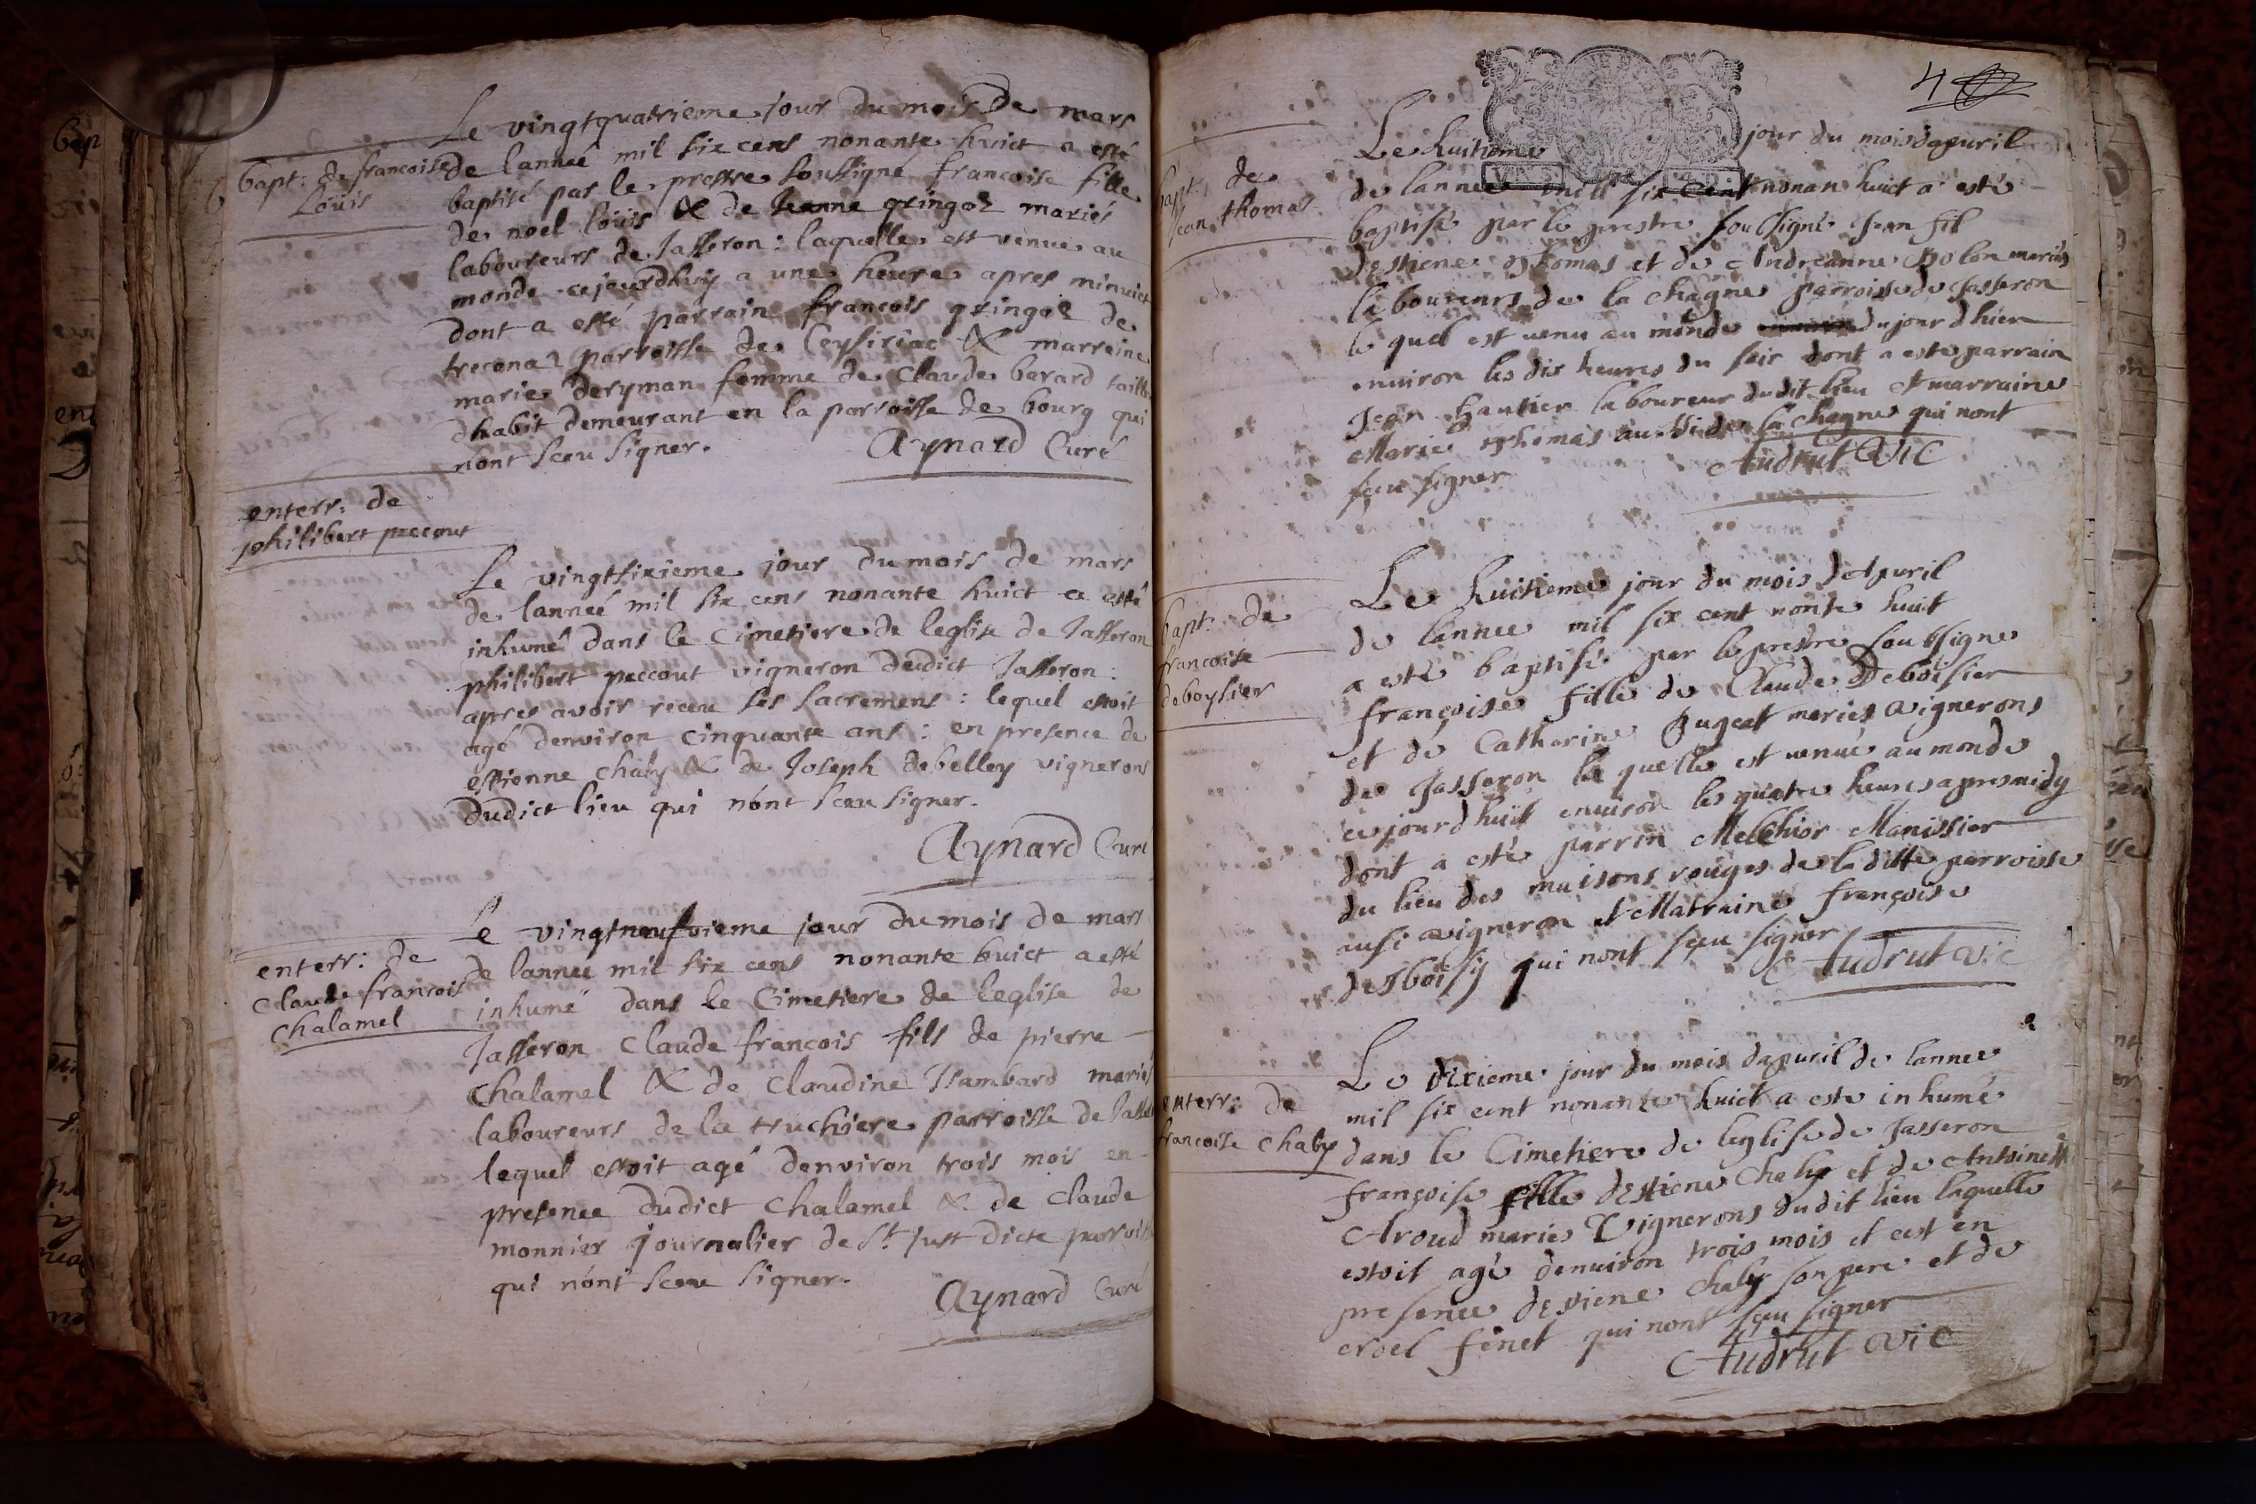 bapt: de francoise
Loüis
Le vingtquatrieme jour du mois de mars
de lanneé mil six cens nonante huict a esté
baptisé par le prestre soussigné francoise fille
de noel loüis & de Jeanne gringoz mariés
laboureurs de Jasseron: laquelle est venue au
monde cejourdhuy a une heure apres minuict
dont a esté parrain francois gringoz de
treconaz parroisse de Ceysiriac & marreine
marie deryman femme de Claude berard taill
dhabit demeurant en la parroisse de bourg qui
nont sceu signer.
Aynard Curé
enterr: de
philibert peccout
Le vingtsixieme jour du mois de mars
de lanneé mil six cens nonante huict a esté
inhumé dans le Cimetiere de leglise de Jasseron
philibert peccout vigneron dudict Jasseron:
apres avoir receu ses sacremens: lequel estoit
agé denviron cinquante ans: en presence de
estienne chaby & de Joseph debelley vignerons
dudict lieu qui nónt sceu signer.
Aynard Curé
enterr: de
Claude francois
Chalamel
Le vingtneufvieme jour du mois de mars
de lannee mil six cens nonante huict a esté
inhumé dans le Cimetiere de leglise de
Jasseron Claude francois fils de pierre
Chalamel & de Claudine Isambard mariés
laboureurs de la truchiere parroisse de Jasse
lequel estoit agé denviron trois mois en
presence dudict Chalamel & de Claude
monnier journalier de St Just dicte parroisse
qui nónt sceu signer.
Aynard Curé
4
bapt: de
Jean thomas
Le huitieme jour du mois dapuril
de lannee mill six cent nonan huict a esté
baptisé par le prestre soubsigné Jean fil
destiene thomas et de Andreanne Polon mariés
laboureurs de la chagne parroisse de Jasseron
le quel est venu au monde du jour dhier
enuiron les dix heures du soir dont a esté parrain
Jean Gautier laboureur du dit lieu et marraine
Marie thomas aussi de la chagne qui nont
sceu signer
Audrut Vic
bapt: de
francoise
deboysier
Le huitieme jour du mois dApuril
de lannee mil six cent nonte huit
a esté baptisé par le prestre soubsigne
françoise fille de Claude Deboisier
et de Catherine Pugeat mariés vignerons
de Jasseron la quelle est venue au monde
cejourdhuit enuiron les quatre heures apresmidy
dont a esté parrin Melchior Manissier
du lieu des maisons rouges de la ditte parroisse
ausi vigneron et Matraine françoise
desboisy qui nont sceu signer
Audrut Vic
enterr: de
francoise chaby
Le dixieme jour du mois dapuril de lannee
mil six cent nonante huict a esté inhumé
dans le Cimetiere de leglise de Jasseron
françoise fille destiene Chaby et de Antoinett
Aroud mariés Vignerons du dit lieu laquelle
estoit agé denuiron trois mois et cest en
presence destiene Chaby son pere et de
finet qui nont sceu signer
Audrut Vic